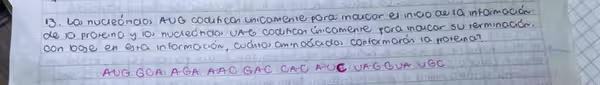 13. Los nucleótidos AUG codifican únicamente para marcar el inicio de la información
de la proteína y los nucleótidos UAG codifican únicamente para marcar su terminación.
Con base en esta información, cuántos aminoácidos conformarán la proteína?
AUG GCA AGA AAC GAC CAC AUC UAG CUA UGC